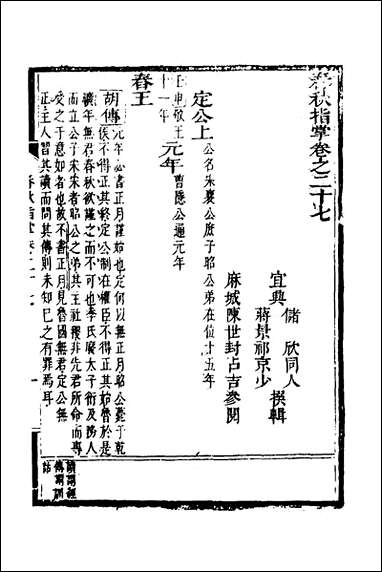 春秋指掌卷之二十七
宜興 儲 欣同人
蔣景祁京少 撰輯
麻城陳世封占吉參閱
定公上 公名朱襄公庶子昭公弟在位十五年
壬申敬王十一年 元年 曹隱公通元年
春王
胡傳 元年必書正月謹始也定何以無正月昭公薨于乾
侯不得正其終定公制在權臣不得正其始魯於是
曠年無君春秋欲謹之而不可也季氏廢太子衍及務人
而立公子宋宋者昭公之弟其主社稷非先君所命而專
受之于意如者也故不書正月見魯國無君定公無
正主人習其讀而問其傳則未知己之有罪焉耳
讀謂經
傳謂訓
詁
春秋指掌 卷二十七
一